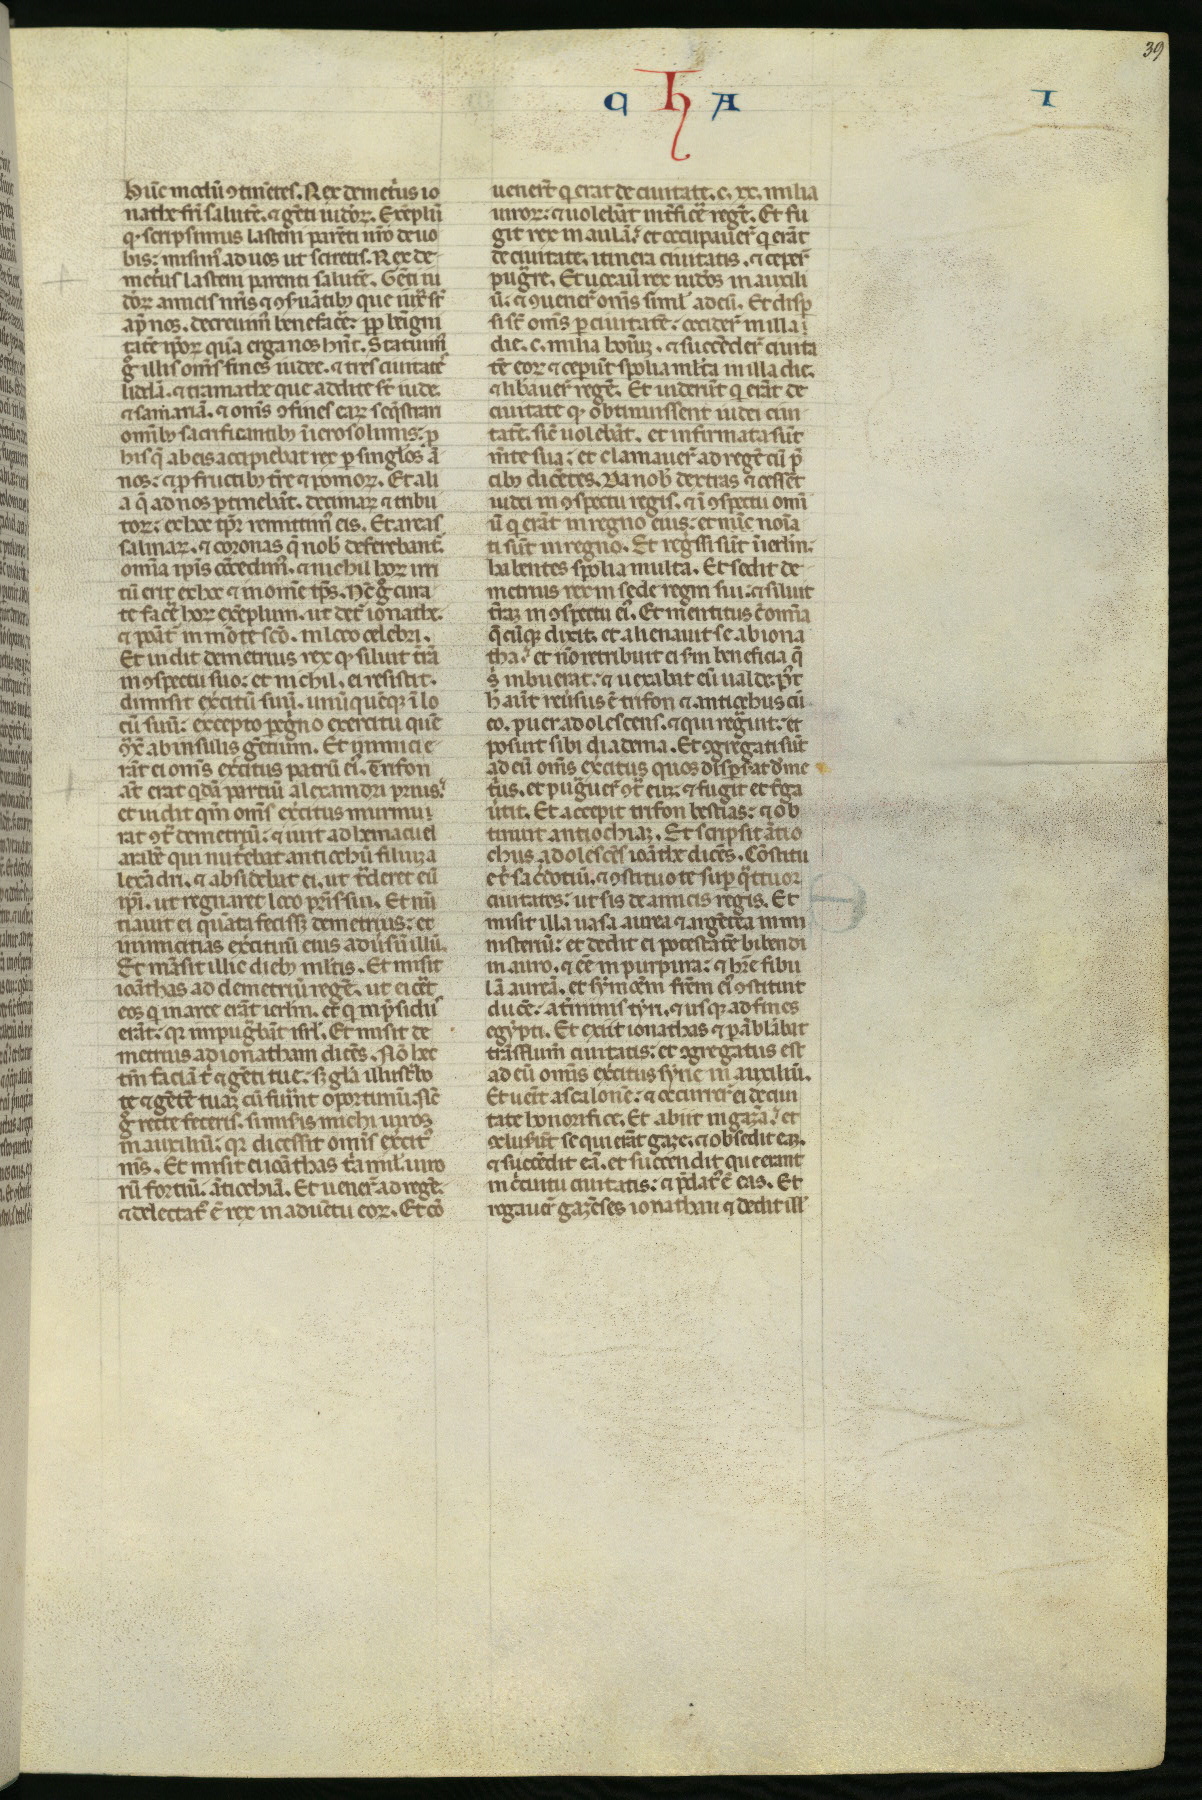 39
C H A I
hūc modū ꝯtinētes. Rex demetrius io
nathe fr̄i salutē. ⁊ gēti iudeoꝝ. Exēplū
q̄ scripsimus lasteni parēti nr̄o de uo
bis: misim᷒ ad uos ut sciretis. Rex de
metrius lasteni parenti salutē. Gēti iu
deoꝝ amicis nr̄is ⁊ ꝯseruātibꝫ que iusta s̄t
apd̄ nos. decreuim᷒ benefacẽ: ꝓpt̄ benigni
tatē ip̄oꝝ quā erga nos hn̄t. Statuim᷒
g̊ illis om̄s fines iudee. ⁊ tres ciuitates
lidelā. ⁊ ramathe que addite s̄t iudee
⁊ samariā. ⁊ om̄s ꝯfines eaꝝ seq̄strari
omībꝫ sacrificantibꝫ ī ierosolimis: ꝓ
his q̄ ab eis accipiebat rex ꝑ singlos ā
nos: ⁊ ꝓ fructibꝫ tr̄e ⁊ pomoꝝ. Et ali
a q̄ ad nos ꝑtinebāt. decimaꝝ ⁊ tribu
toꝝ: ex hoc tp̄r remittim᷒ eis. Et areas
salinaꝝ. ⁊ coronas q̄ nob̄ deferebant᷒.
om̄ia ip̄is cōcedim᷒. ⁊ nichil hoꝝ irri
tū erit ex hoc ⁊ in om̄e tp̄s. Nūc g̊ cura
te facē hoꝝ exēplum. ut det᷒ ionathe.
⁊ ponat᷒ in mōte scō. in loco celebri.
Et uidit demetrius rex q̄ siluit t̄ra
in ꝯspectu suo: et nichil ei resistit.
dimisit exercitū suū. unūquēqꝫ ī lo
cū suū: excepto peg̊no exercitu quē
ꝯtͣxit ab insulis gētium. Et inimici e
rāt ei om̄s exercitus patrū ei᷒. Trifon
aūt erat qdā partiū alexandri prius:
et uidit qm̄ om̄s exercitus murmu
rat ꝯt̄ demetriū: ⁊ iuit ad hemalcuel
arabē qui nutriebat antiochū filium a
lexādri. ⁊ absidebat ei. ut t̄deret eū
ip̄i. ut regnaret loco pr̄is sui. Et nū
tiauit ei quāta fecisset demetrius: et
inimicitias exercituū eius aduersū illū.
Et māsit illic diebꝫ ml̄tis. Et misit
ionathas ad demetriū regē. ut eicēt
eos q̄ in arce erāt ierlm̄. et q̄ in p̄sidiis
erāt: qꝛ impugbāt isrl̄. Et misit de
metrius ad ionatham dicēs. Nō hec
tm̄ faciā t̄ ⁊ gēti tue. sꝫ gl̄a illustrabo
te ⁊ gētē tuā: cū fuerit oportunū. Nūc
g̊ recte feceris. si misis michi uiros
in auxiliū: qꝛ discessit om̄is exercit᷒
m̄s. Et misit ei ionathas tria mil̄. uiro
rū fortiū. antiochiā. Et uenerūt ad regē.
⁊ delectat᷒ ē rex in aduētu eoꝝ. Et cō
uenerūt q̄ erat de ciuitate. c. xx. milia
uiroꝝ: ⁊ uolebāt int̄ficē regē. Et fu
git rex in aulā: et occupauer̄ q̄ erāt
de ciuitate. itinera ciuitatis. ⁊ ceper̄
pugͣre. Et uocauit rex iudeos in auxili
ū. ⁊ ꝯuener̄ om̄s simul̄ ad eū. Et disp̄
si s̄t om̄s ꝑ ciuitatē: ⁊ cecider̄ in illa
die. c. milia hom̄uꝫ. ⁊ succēder̄ ciuita
tē eoꝝ ⁊ ceperūt spolia ml̄ta in illa die.
⁊ lib̄auer̄ regē. Et uiderūt q̄ erāt de
ciuitate q̄ obtinuissent iudei ciui
tatē. sic̄ uolebāt. et infirmata sūt
mēte sua: et clamauer̄ ad regē cū p̄
cibꝫ dicētes. Da nob̄ dextras ⁊ cessēt
iudei in ꝯspectu regis. ⁊ ī ꝯspectu omī
ū q̄ erāt in regno eius: et nūc noīa
ti sūt in regno. Et reg̊ssi sūt ī ierlm̄.
habentes spolia multa. Et sedit de
metrius rex in sede regni sui: ⁊ siluit
t̄ra in ꝯspectu ei᷒. Et mentitus ē om̄ia
q̄cūqꝫ dixit. et alienauit se ab iona
tha: et nō retribuit ei sm̄ beneficia q̄
s̄ tribuerat: ⁊ uexabat eū ualde. pꝰt
h̄ aūt reuersus ē trifon ⁊ antiochus cū
eo. puer adolescens. ⁊ qui regͣuit: et
posuit sibi diadema. Et ꝯgregati sūt
ad eū om̄s exercitus quos disꝑserat deme
trius. et pugͣuer̄ ꝯt̄ eū: ⁊ fugit et t̄ga
uertit. Et accepit trifon bestias: ⁊ ob
tinuit antiochiā. Et scripsit antio
chus adolescēs ionathe dicēs. Cōstitu
o t̄ sacerdotiū. ⁊ ꝯstituo te suꝑ qͣttuor
ciuitates: ut sis de amicis regis. Et
misit illi uasa aurea ⁊ argētea in mi
nisteriū: et dedit ei potestatē bibendi
in auro. ⁊ eē in purpura: ⁊ hr̄e fibu
lā aureā. et symōem fr̄em ei᷒ ꝯstituit
ducē. a t̄minis tyri. ⁊ usqꝫ ad fines
egypti. Et exiit ionathas ⁊ ꝑāblabat
trāsflum̄ ciuitatis: et ꝯgregatus est
ad eū om̄is exercitus syrie in auxiliū.
Et uenit ascalonē: ⁊ occurrer̄ ei de ciui
tate honorifice. Et abiit ingazā: et
ꝯcluserūt se qui erāt gaze. ⁊ obsedit eā.
⁊ succēdit eā. et succendit que erant
in circuitu ciuitatis: ⁊ p̄dat᷒ ē eas. Et
rogauer̄ gazēses ionathan ⁊ dedit ill᷒